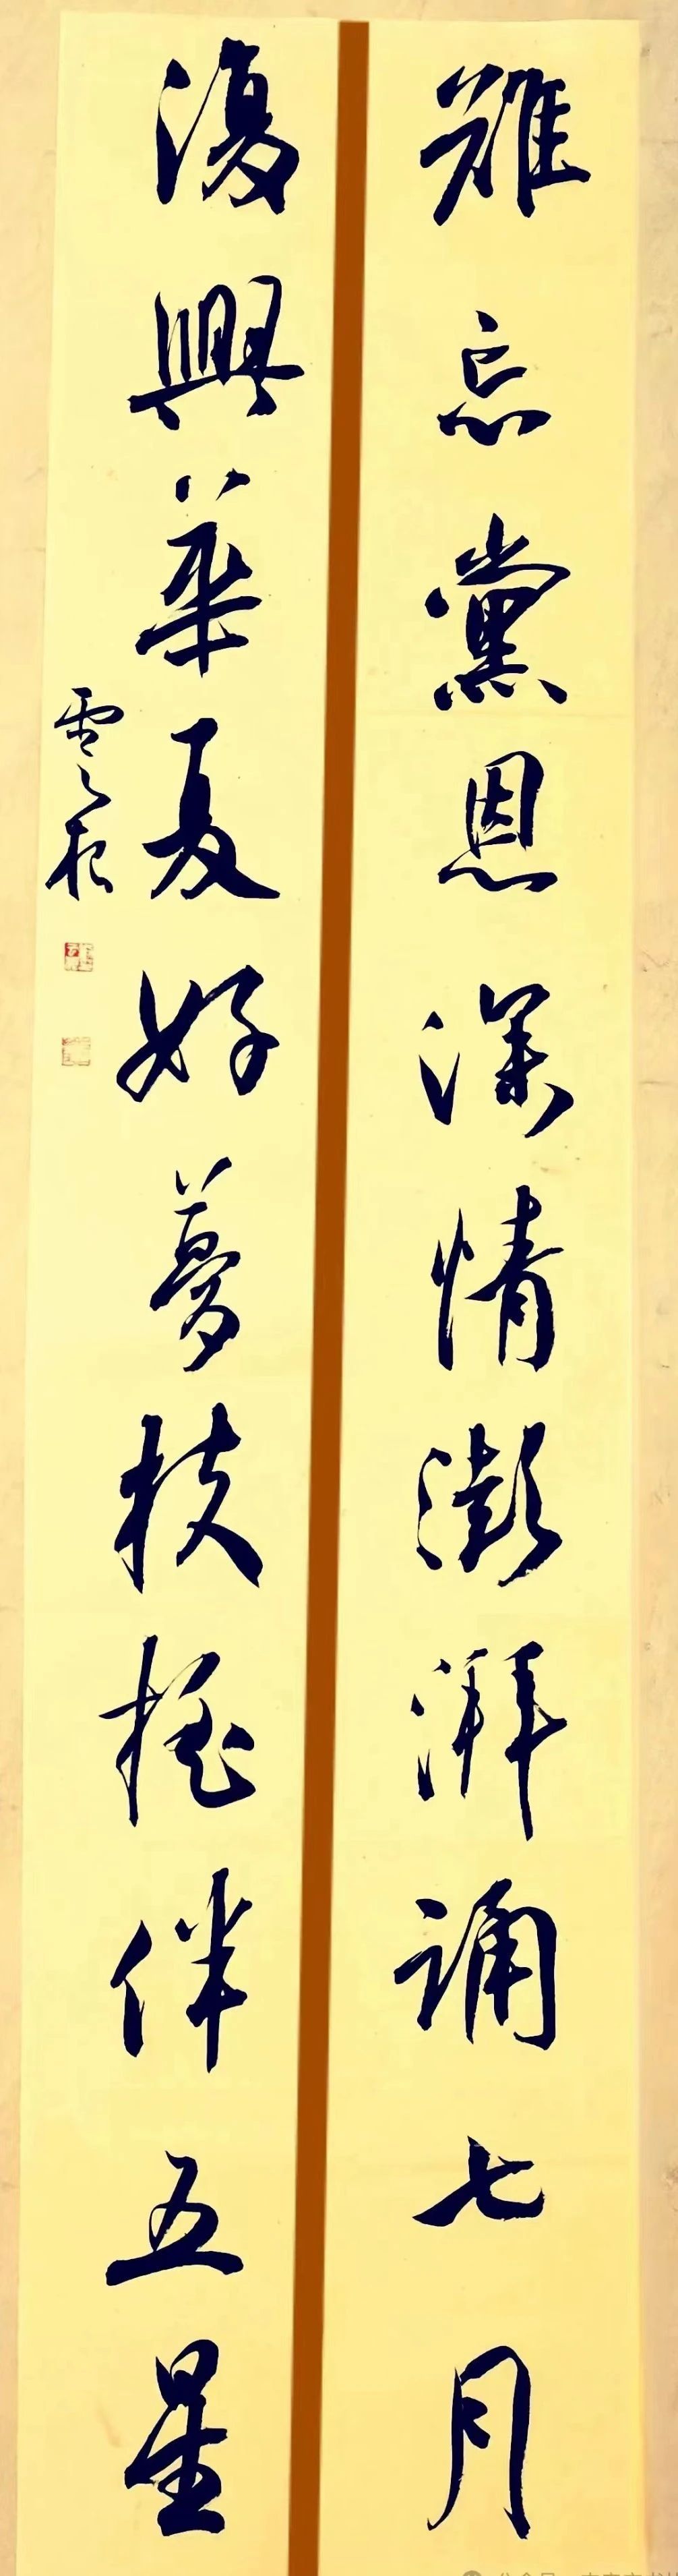 難忘黨恩深情澎湃誦七月
復興華夏好夢扶搖伴五星